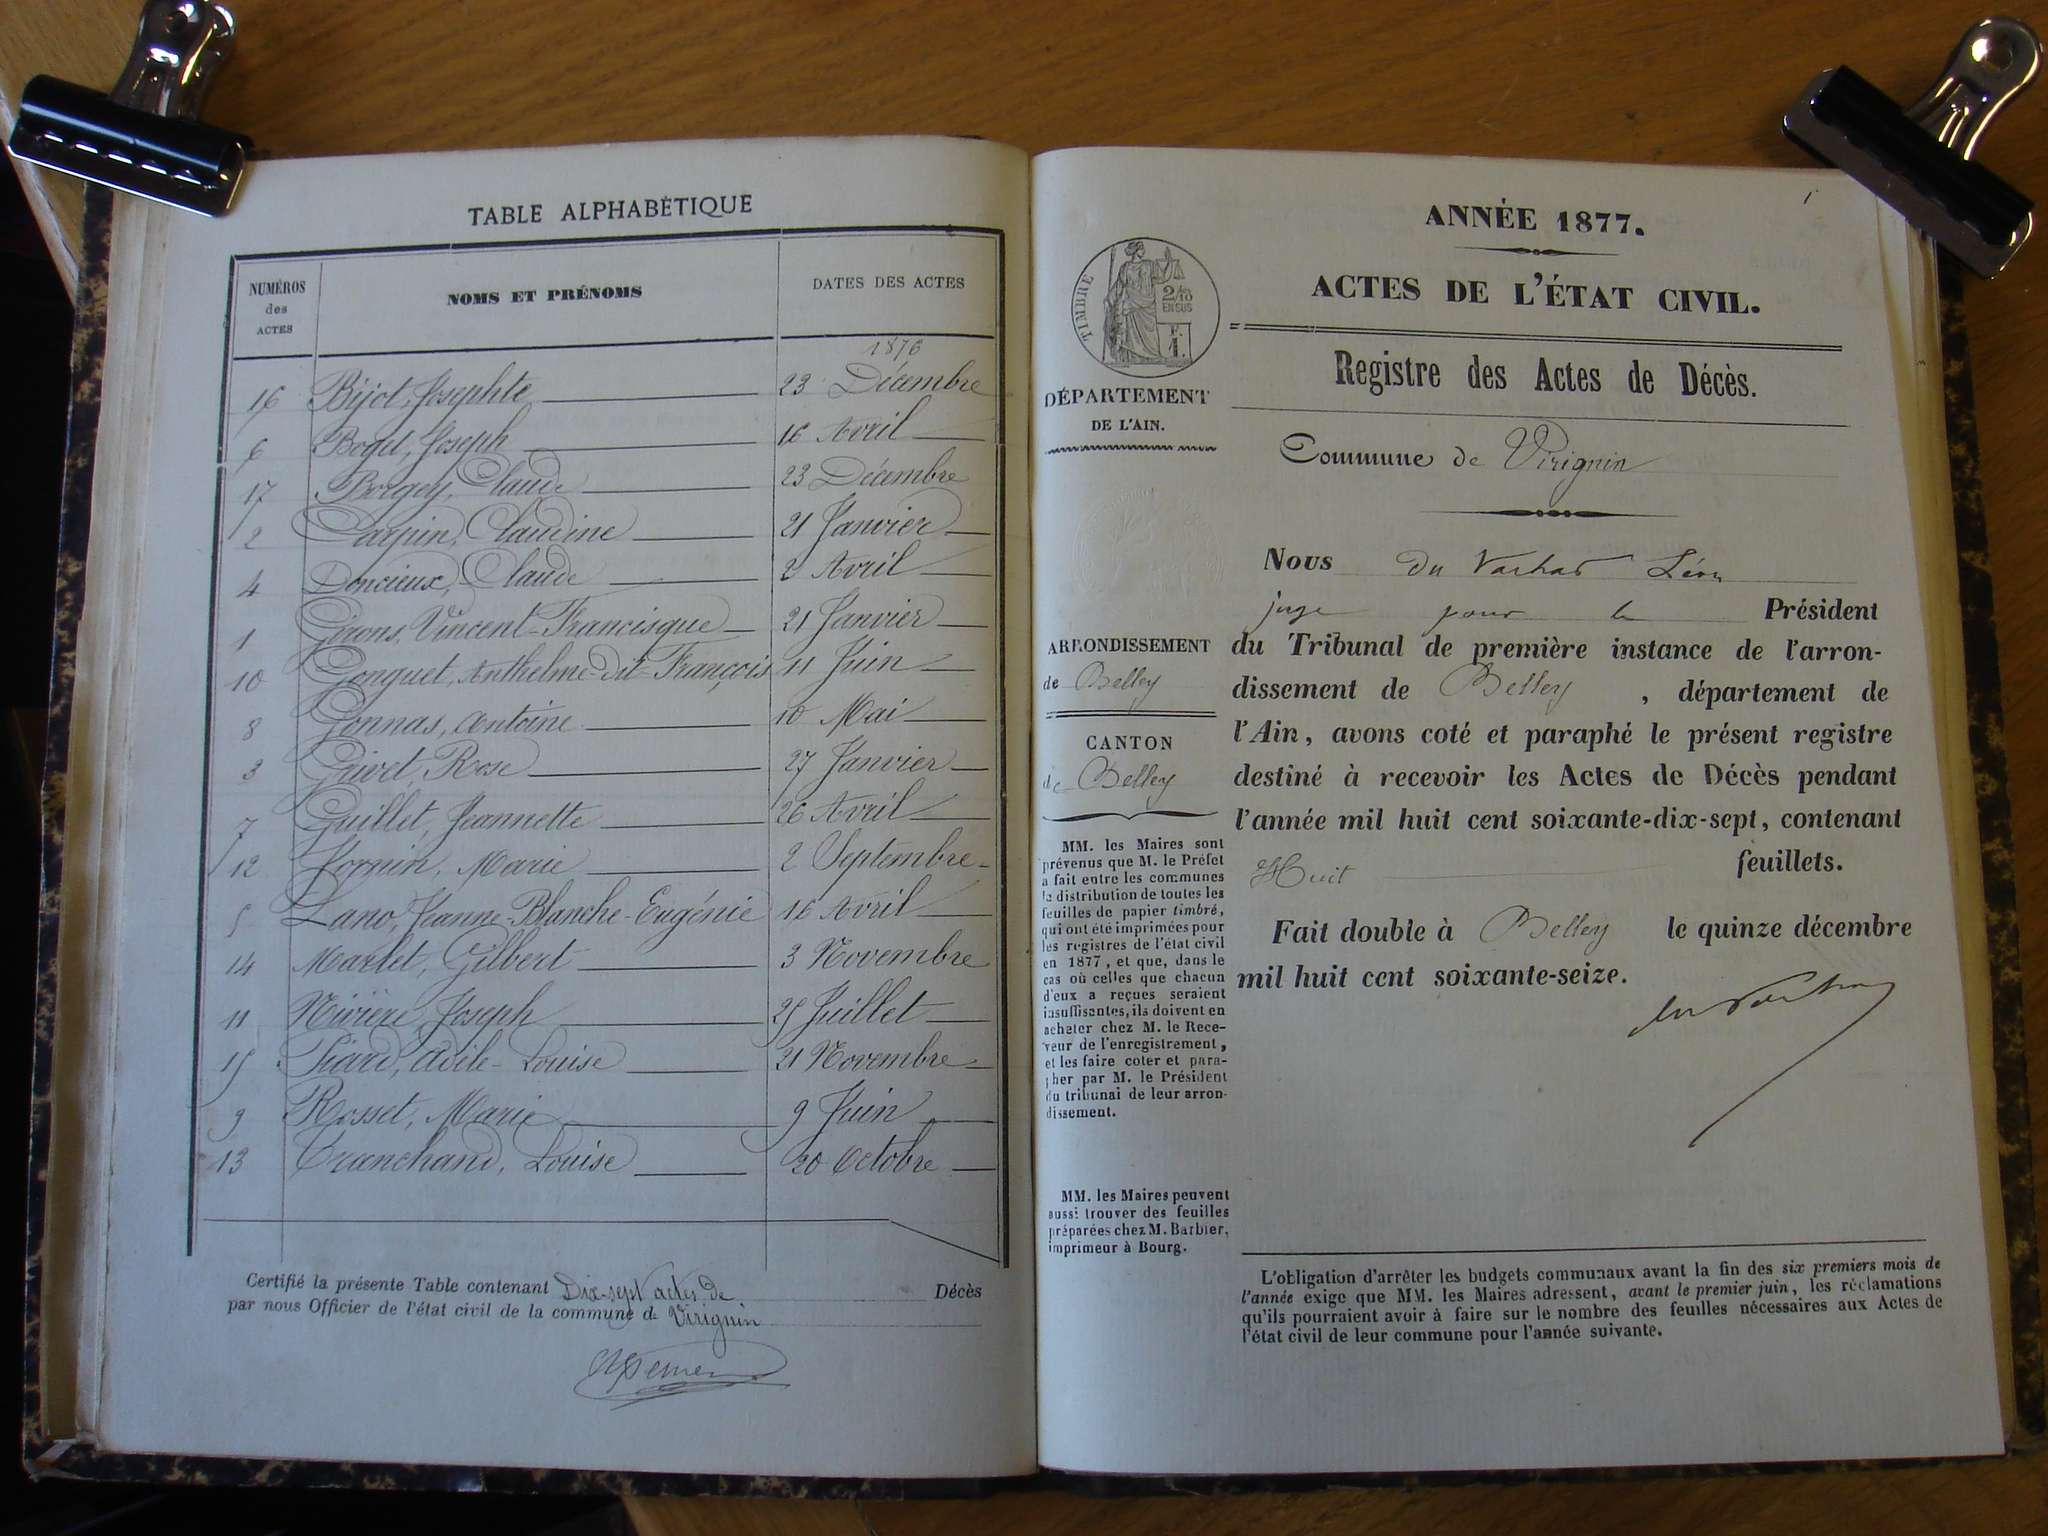 TABLE ALPHABÉTIQUE
NUMÉROS des ACTES NOMS ET PRÉNOMS DATES DES ACTES
1876
16 Bijot, Josephte 23 Décembre
6 Bogel, Joseph 16 Avril
17 Borgey, Claude 23 Décembre
2 Carpin, Claudine 21 Janvier
4 Doncieux, Claude 2 Avril
1 Girons, Vincent-Francisque 21 Janvier
10 Gonguet, Anthelme-dit-François 11 Juin
8 Gonnas, Antoine 10 Mai
3 Grivet, Rose 27 Janvier
7 Guillet, Jeannette 26 Avril
12 Marie 2 Septembre
5 Lano, Jeanne-Blanche-Eugénie 16 Avril
14 Marlet, Gilbert 3 Novembre
11 Nivière, Joseph 25 Juillet
15 Adèle-Louise 21 Novembre
9 Rosset, Marie 9 Juin
13 Tranchand, Louise 20 Octobre
Certifié la présente Table contenant Dix-sept actes de Décès
par nous Officier de l'état civil de la commune de Virignin
1
ANNÉE 1877.
ACTES DE L'ÉTAT CIVIL.
TIMBRE
2/10
EN SUS
F
1.
Registre des Actes de Décès.
DÉPARTEMENT
DE L'AIN.
Commune de Virignin
Nous du Vachat Léon
juge pour le Président
ARRONDISSEMENT
de Belley
CANTON
de Belley
du Tribunal de première instance de l'arron-
dissement de Belley, département de
l'Ain, avons coté et paraphé le présent registre
destiné à recevoir les Actes de Décès pendant
l'année mil huit cent soixante-dix-sept, contenant
Huit feuillets.
Fait double à Belley le quinze décembre
mil huit cent soixante-seize.
du Vachat
MM. les Maires sont
prévenus que M. le Préfet
a fait entre les communes
la distribution de toutes les
feuilles de papier timbré,
qui ont été imprimées pour
les registres de l'état civil
en 1877, et que, dans le
cas où celles que chacun
d'eux a reçues seraient
insuffisantes, ils doivent en
acheter chez M. le Rece-
veur de l'enregistrement,
et les faire coter et para-
pher par M. le Président
du tribunal de leur arron-
dissement.
MM. les Maires peuvent
aussi trouver des feuilles
préparées chez M. Barbier,
imprimeur à Bourg.
L'obligation d'arrêter les budgets communaux avant la fin des six premiers mois de
l'année exige que MM. les Maires adressent, avant le premier juin, les réclamations
qu'ils pourraient avoir à faire sur le nombre des feuilles nécessaires aux Actes de
l'état civil de leur commune pour l'année suivante.